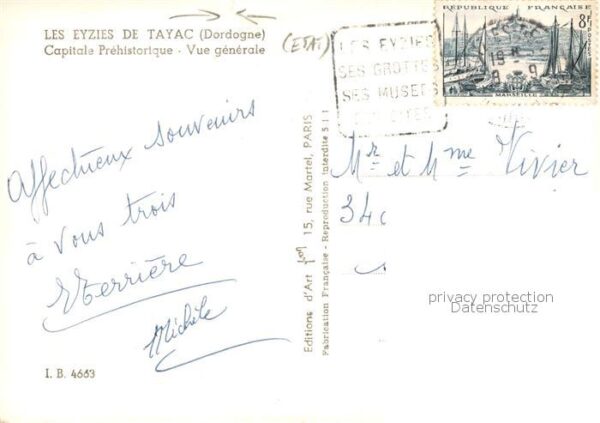 LES EYZIES DE TAYAC (Dordogne)
Capitale Préhistorique - Vue générale
Affectueux souvenirs
à vous trois
Verrière
Michèle
I. B. 4663
Editions d'Art yvon 15, rue Martel, PARIS
Fabrication Française - Reproduction interdite 5 1 1
LES EYZIES
SES GROTTES
SES MUSEES
REPUBLIQUE FRANÇAISE
8F
POSTES
19 H
8 - 9
Mr et Mme Vivier
34c
privacy protection
Datenschutz